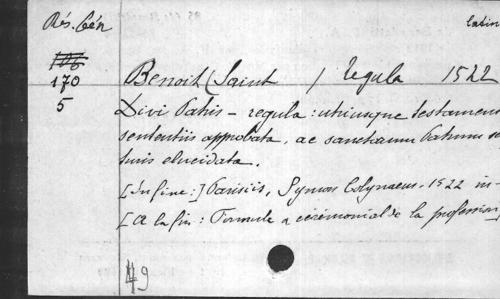 Rés. Gén
latin
106
170
5
Benoit (Saint) Regula 1522
Divi Patris - regula : utriusque testament
sententiis approbata, ac sanctarum Patrum se
turis elucidata.
[In fine:] Parisiis, Symon Colynaeus. 1522 in-
[A la fin : Formule & cérémonial de la profession,
49